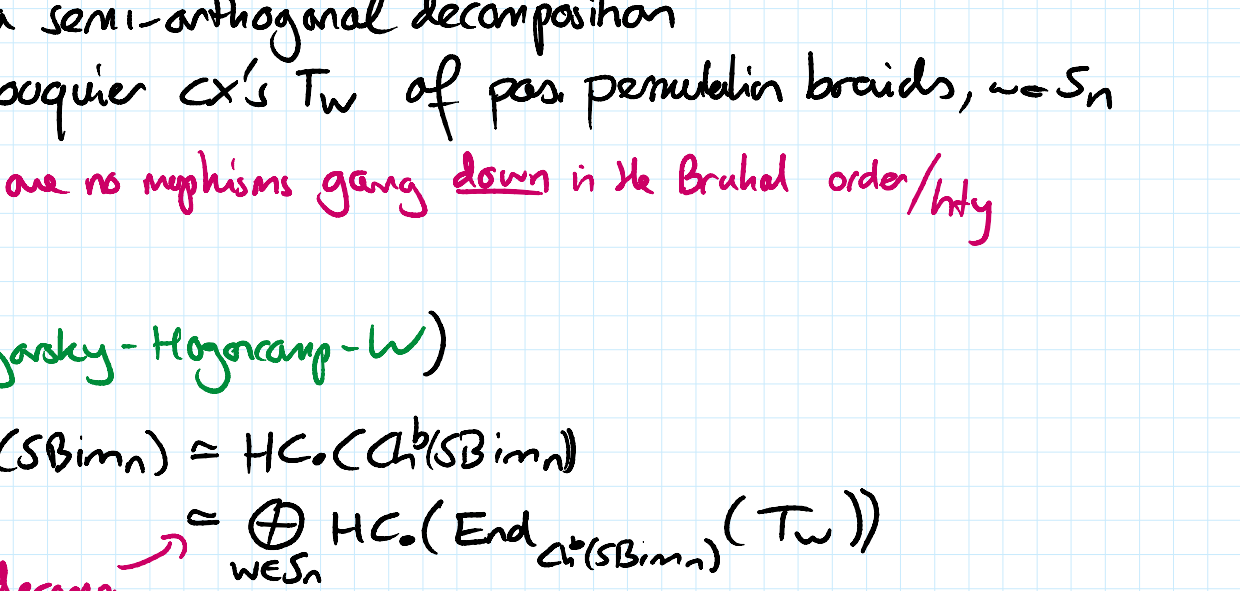 a semi-orthogonal decomposition
ouquier cx's T_w of pos. permutation braids, w∈S_n
are no morphisms going down in the Bruhat order/hty
garsky-Hogancamp-W)
(SBim_n) ≃ HC•(Ch^b(SBim_n))
≃ ⊕_{w∈S_n} HC•(End_{Ch^b(SBim_n)}(T_w))